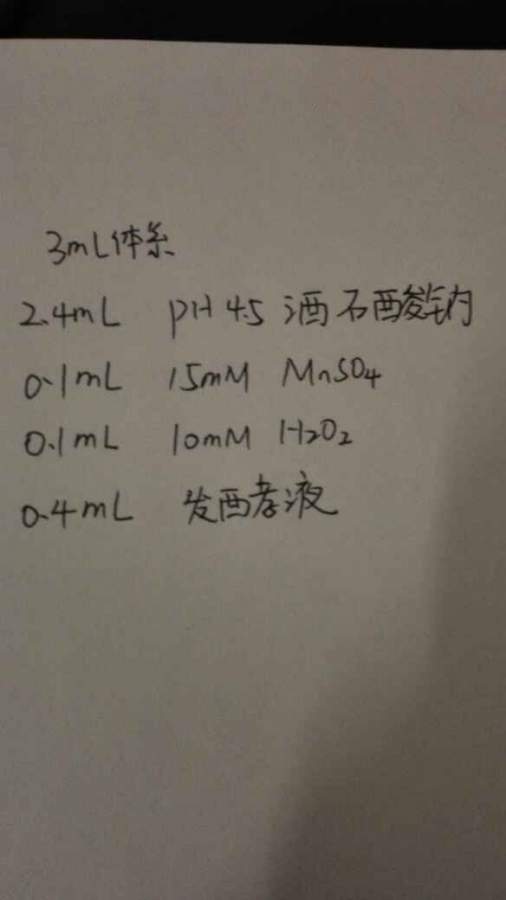 3mL体系
2.4mL pH 4.5 酒石酸钠
0.1mL 15mM MnSO4
0.1mL 10mM H2O2
0.4mL 发酵液